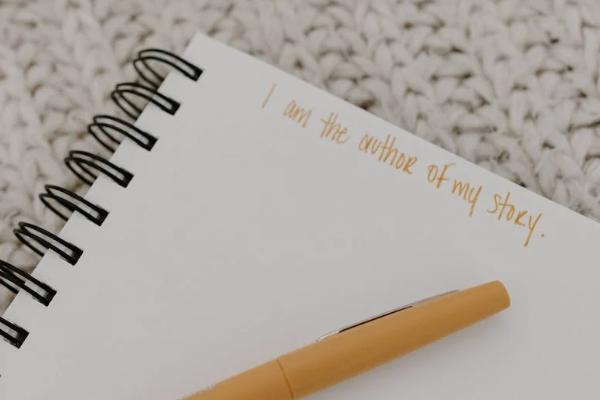 I am the author of my story.